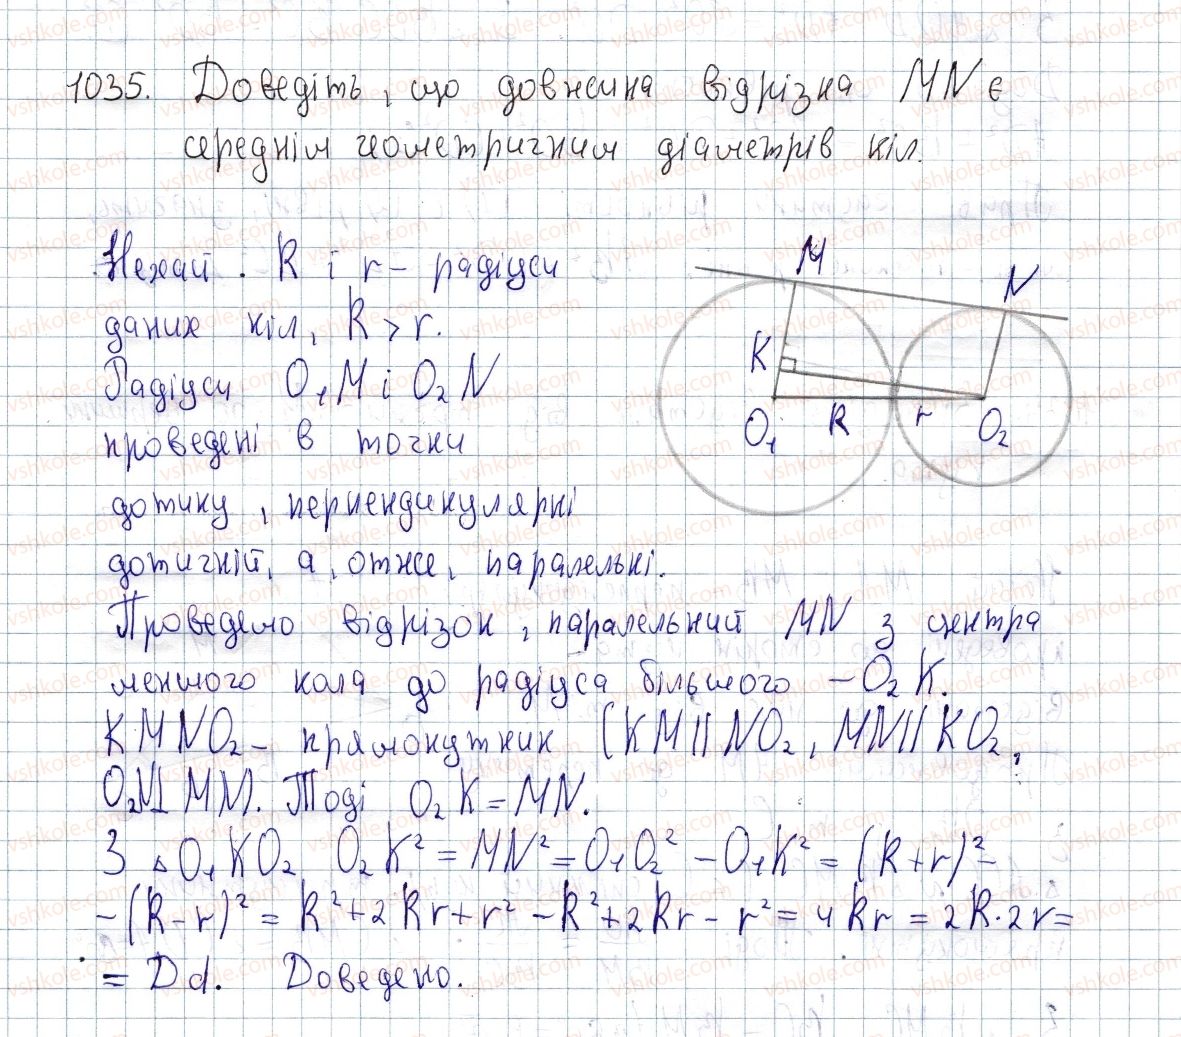 1035. Доведіть, що довжина відрізка MN є
середнім геометричним діаметрів кіл.
Нехай R і r - радіуси
даних кіл, R > r.
Радіуси O₁M і O₂N
проведені в точки
дотику, перпендикулярні
дотичній, а, отже, паралельні.
Проведемо відрізок, паралельний MN з центра
меншого кола до радіуса більшого - O₂K.
KMNO₂ - прямокутник (KM || NO₂, MN || KO₂,
Тоді O₂K = MN.
З △ O₁KO₂ O₂K² = MN² = O₁O₂² - O₁K² = (R+r)² -
- (R-r)² = R² + 2Rr + r² - R² + 2Rr - r² = 4Rr = 2R·2r =
= Dd. Доведено.
M
N
K
O₁
R
r
O₂